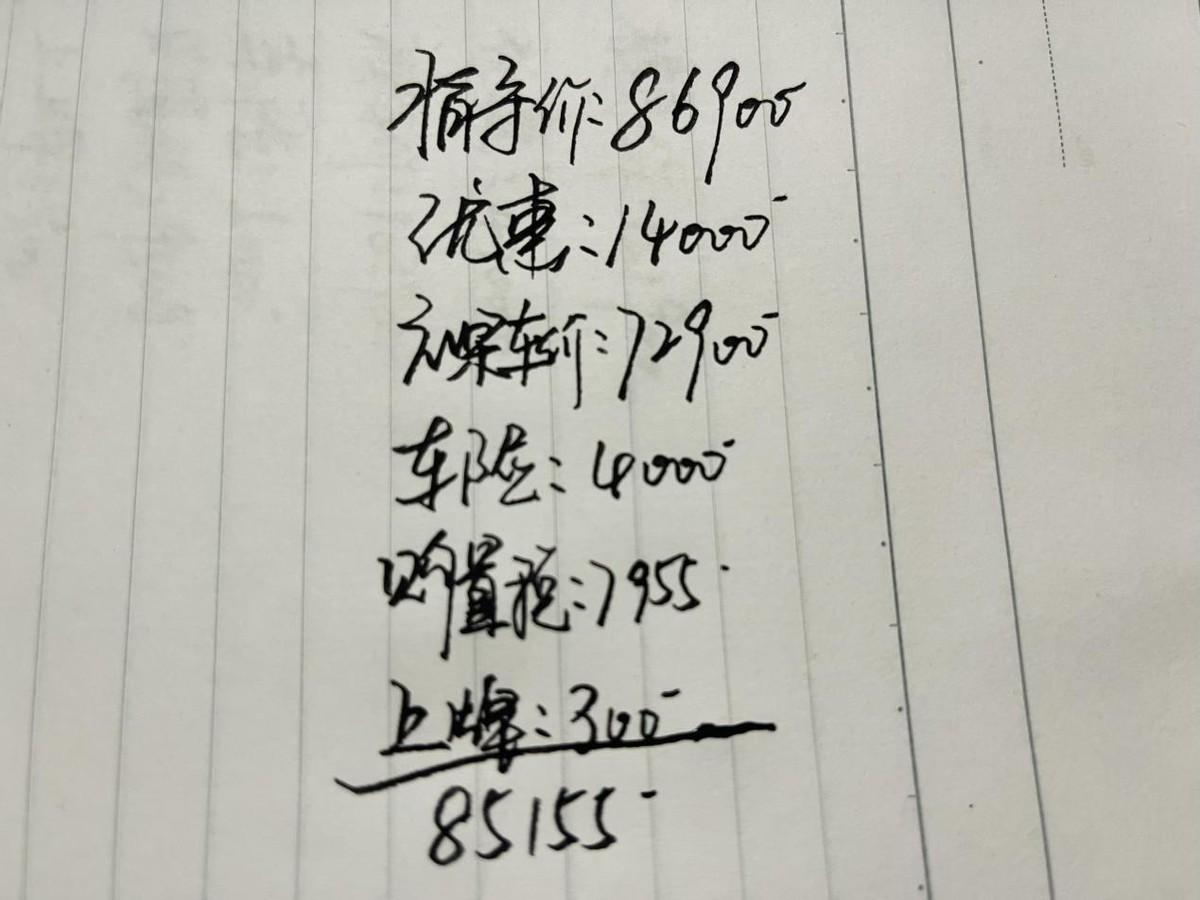 指导价:86900
优惠:14000
裸车价:72900
车险:4000
购置税:7955
上牌:300
85155